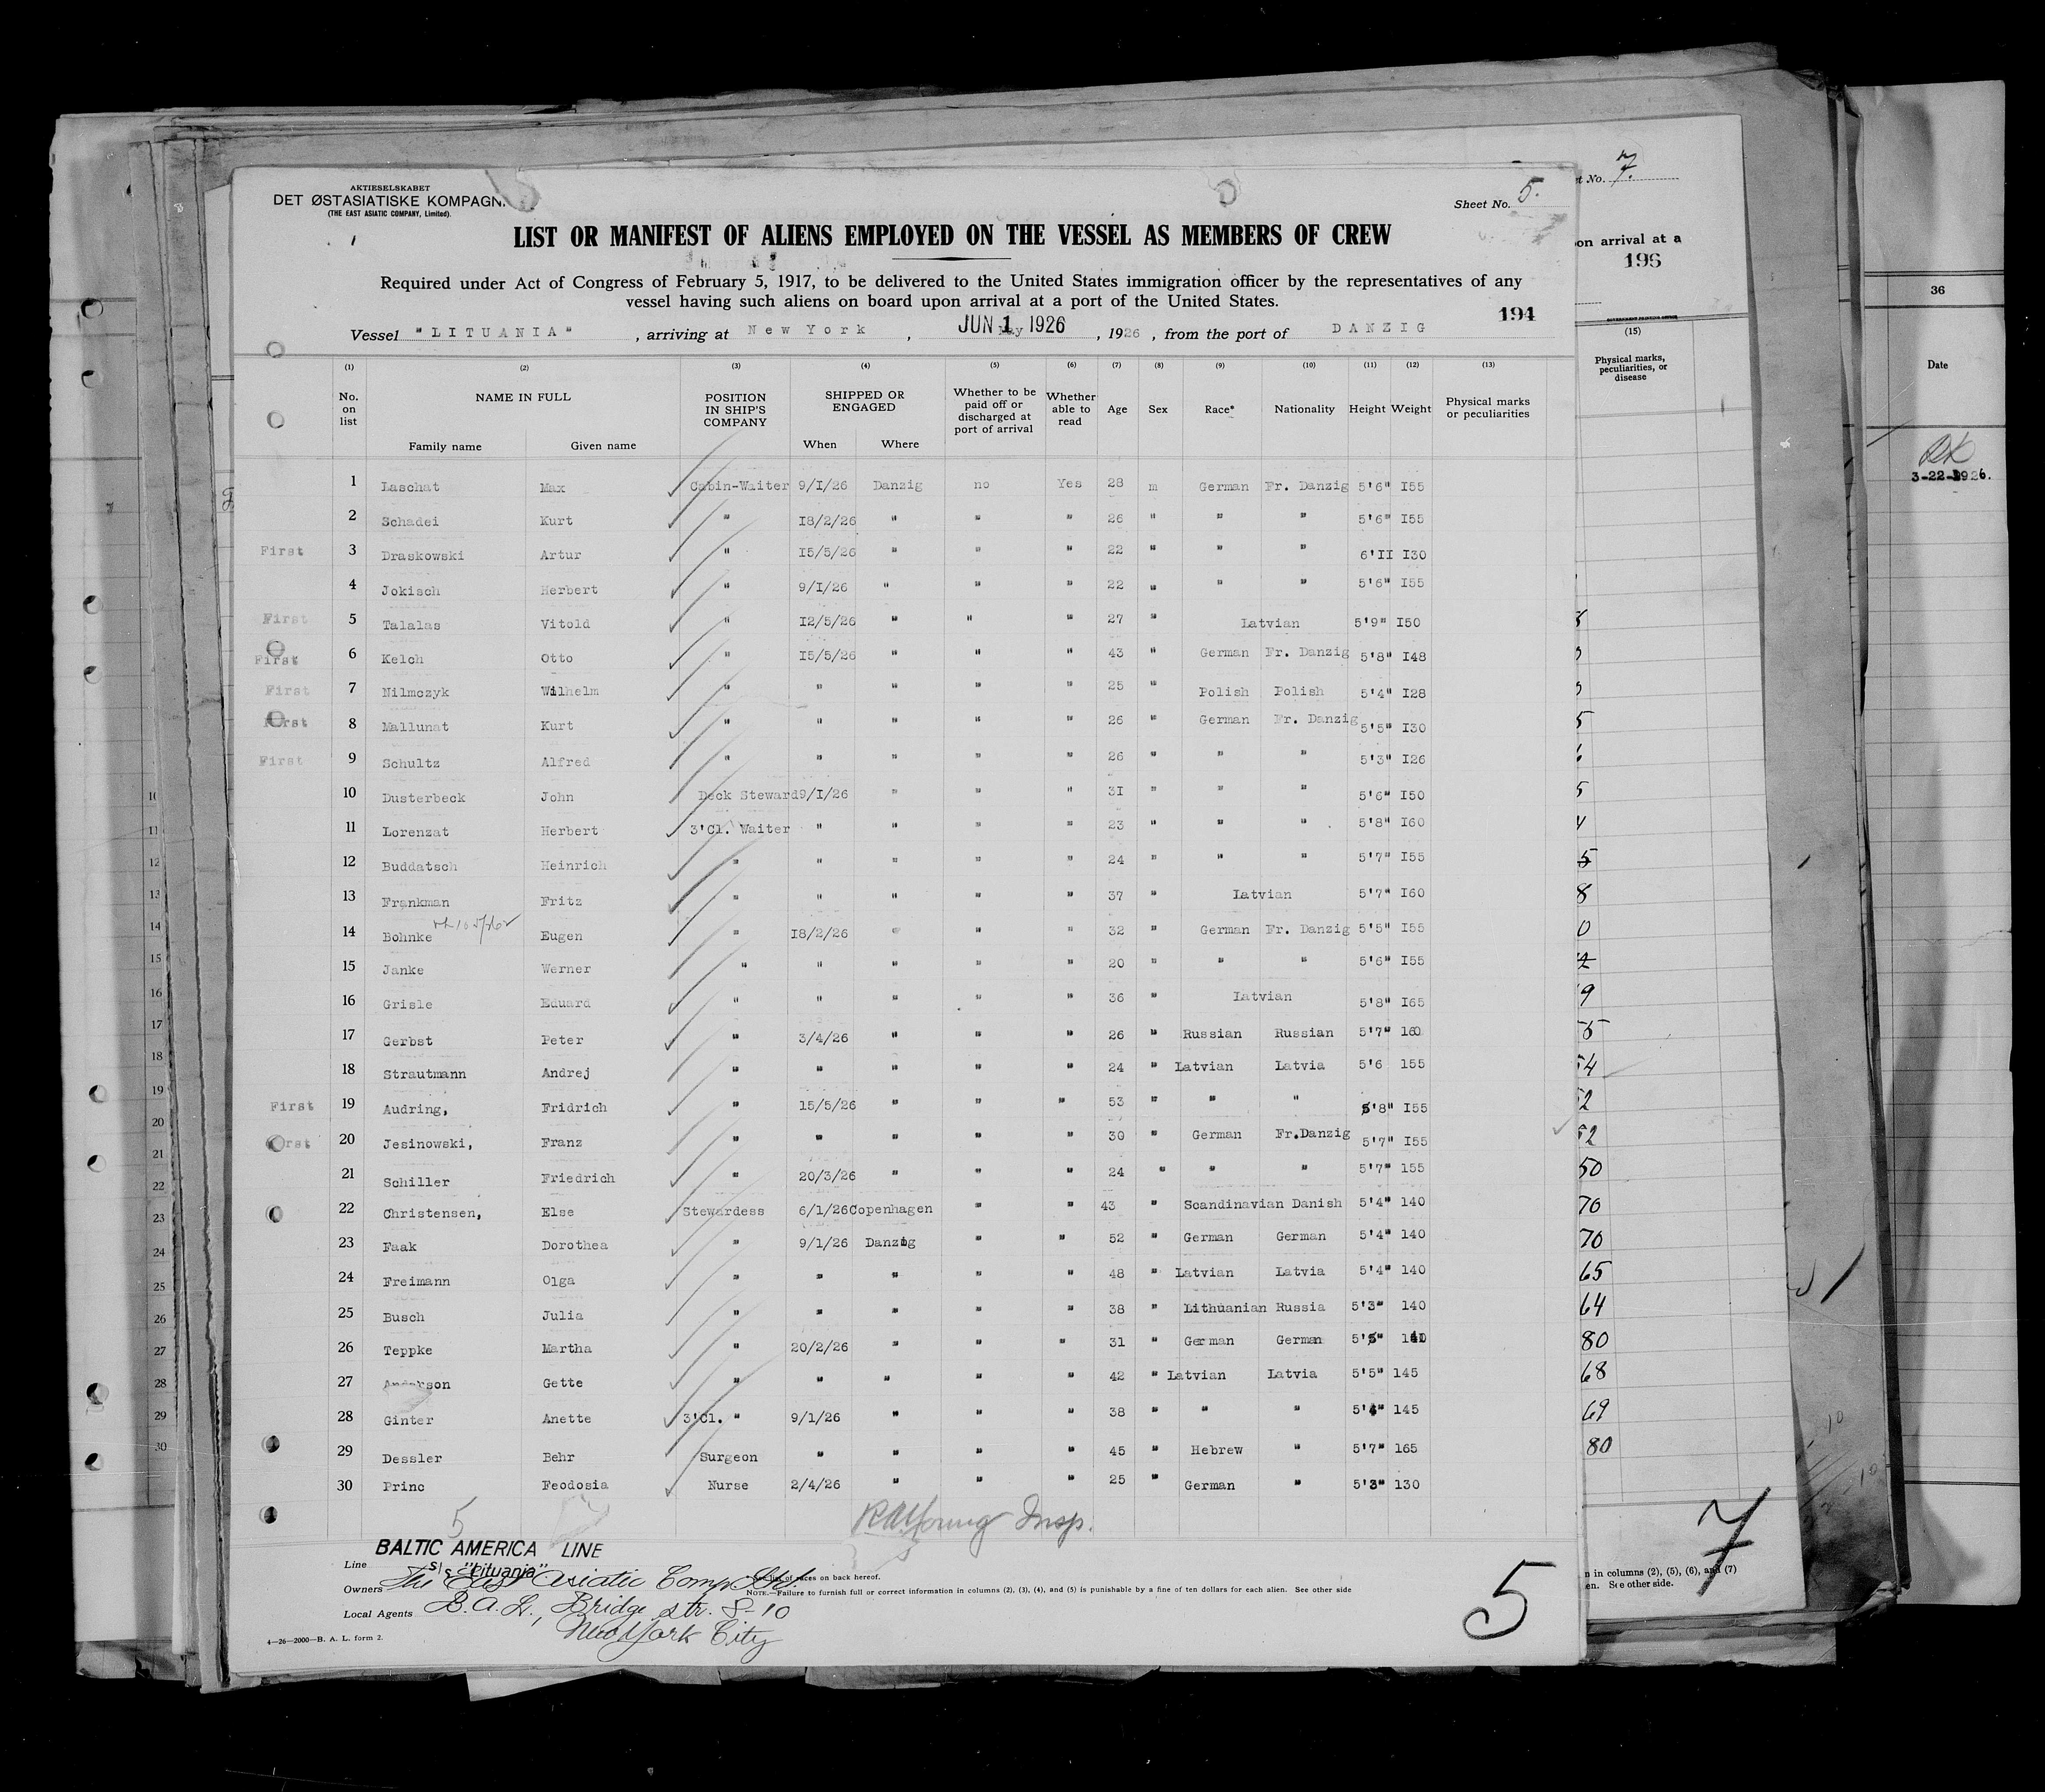 AKTIESELSKABET
DET ØSTASIATISKE KOMPAGN
(THE EAST ASIATIC COMPANY, Limited).
Sheet No. 5.
LIST OR MANIFEST OF ALIENS EMPLOYED ON THE VESSEL AS MEMBERS OF CREW
Required under Act of Congress of February 5, 1917, to be delivered to the United States immigration officer by the representatives of any
vessel having such aliens on board upon arrival at a port of the United States.
194
Vessel "LITUANIA" , arriving at New York , JUN 1 1926 , 1926 , from the port of DANZIG
(1) (2) (3) (4) (5) (6) (7) (8) (9) (10) (11) (12) (13)
No. on list NAME IN FULL Family name Given name POSITION IN SHIP'S COMPANY SHIPPED OR ENGAGED When Where Whether to be paid off or discharged at port of arrival Whether able to read Age Sex Race* Nationality Height Weight Physical marks or peculiarities
1 Laschat Max Cabin-Waiter 9/I/26 Danzig no Yes 28 m German Fr. Danzig 5'6" I55
2 Schadei Kurt " I8/2/26 " " " 26 " " " 5'6" I55
First 3 Draskowski Artur " I5/5/26 " " " 22 " " " 6'II I30
4 Jokisch Herbert " 9/I/26 " " " 22 " " " 5'6" I55
First 5 Talalas Vitold " I2/5/26 " " " 27 " Latvian 5'9" I50
First 6 Kelch Otto " I5/5/26 " " " 43 " German Fr. Danzig 5'8" I48
First 7 Nilmczyk Wilhelm " " " " " 25 " Polish Polish 5'4" I28
First 8 Mallunat Kurt " " " " " 26 " German Fr. Danzig 5'5" I30
First 9 Schultz Alfred " " " " " 26 " " " 5'3" I26
10 Dusterbeck John Deck Steward 9/I/26 " " " 3I " " " 5'6" I50
11 Lorenzat Herbert 3'Cl. Waiter " " " " 23 " " " 5'8" I60
12 Buddatsch Heinrich " " " " " 24 " " " 5'7" I55
13 Frankman Fritz " " " " " 37 " Latvian 5'7" I60
14 Bohnke Eugen " I8/2/26 " " " 32 " German Fr. Danzig 5'5" I55
15 Janke Werner " " " " " 20 " " " 5'6" I55
16 Grisle Eduard " " " " " 36 " Latvian 5'8" I65
17 Gerbst Peter " 3/4/26 " " " 26 " Russian Russian 5'7" 160
18 Strautmann Andrej " " " " " 24 " Latvian Latvia 5'6 155
First 19 Audring, Fridrich " 15/5/26 " " " 53 " " " 5'8" I55
First 20 Jesinowski, Franz " " " " " 30 " German Fr.Danzig 5'7" I55
21 Schiller Friedrich " 20/3/26 " " " 24 " " " 5'7" 155
22 Christensen, Else Stewardess 6/1/26 Copenhagen " " 43 " Scandinavian Danish 5'4" 140
23 Faak Dorothea " 9/1/26 Danzig " " 52 " German German 5'4" 140
24 Freimann Olga " " " " " 48 " Latvian Latvia 5'4" 140
25 Busch Julia " " " " " 38 " Lithuanian Russia 5'3" 140
26 Teppke Martha " 20/2/26 " " " 31 " German German 5'5" 140
27 Anderson Gette " " " " " 42 " Latvian Latvia 5'5" 145
28 Ginter Anette 3'Cl. " 9/1/26 " " " 38 " " " 5'4" 145
29 Dessler Behr Surgeon " " " " 45 " Hebrew " 5'7" 165
30 Princ Feodosia Nurse 2/4/26 " " " 25 " German " 5'3" 130
5
R A Young Insp.
Line BALTIC AMERICA LINE
S/S "Lituania"
Owners The East Asiatic Comp. Ltd.
of races on back hereof.
NOTE.—Failure to furnish full or correct information in columns (2), (3), (4), and (5) is punishable by a fine of ten dollars for each alien. See other side
Local Agents B.A.L., Bridge str. 8-10
New York City
4—26—2000—B. A. L. form 2.
5
t No. 7.
on arrival at a
196
(15)
Physical marks, peculiarities, or disease
50
70
70
65
64
80
68
69
80
7
n in columns (2), (5), (6), and (7)
en. See other side.
36
Date
3-22-1926.
10
11
12
13
14
15
16
17
18
19
20
21
22
23
24
25
26
27
28
29
30